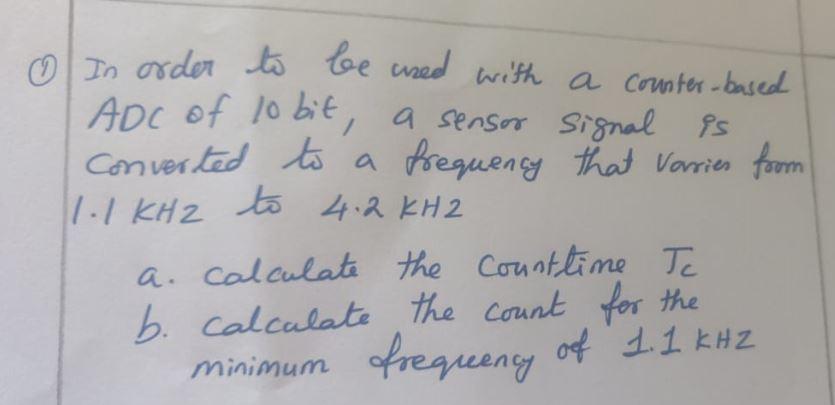 ① In order to be used with a counter-based
ADC of 10 bit, a sensor signal is
Converted to a frequency that varies from
1.1 KHZ to 4.2 KHZ
a. calculate the Count time Tc
b. calculate the count for the
minimum frequency of 1.1 KHZ